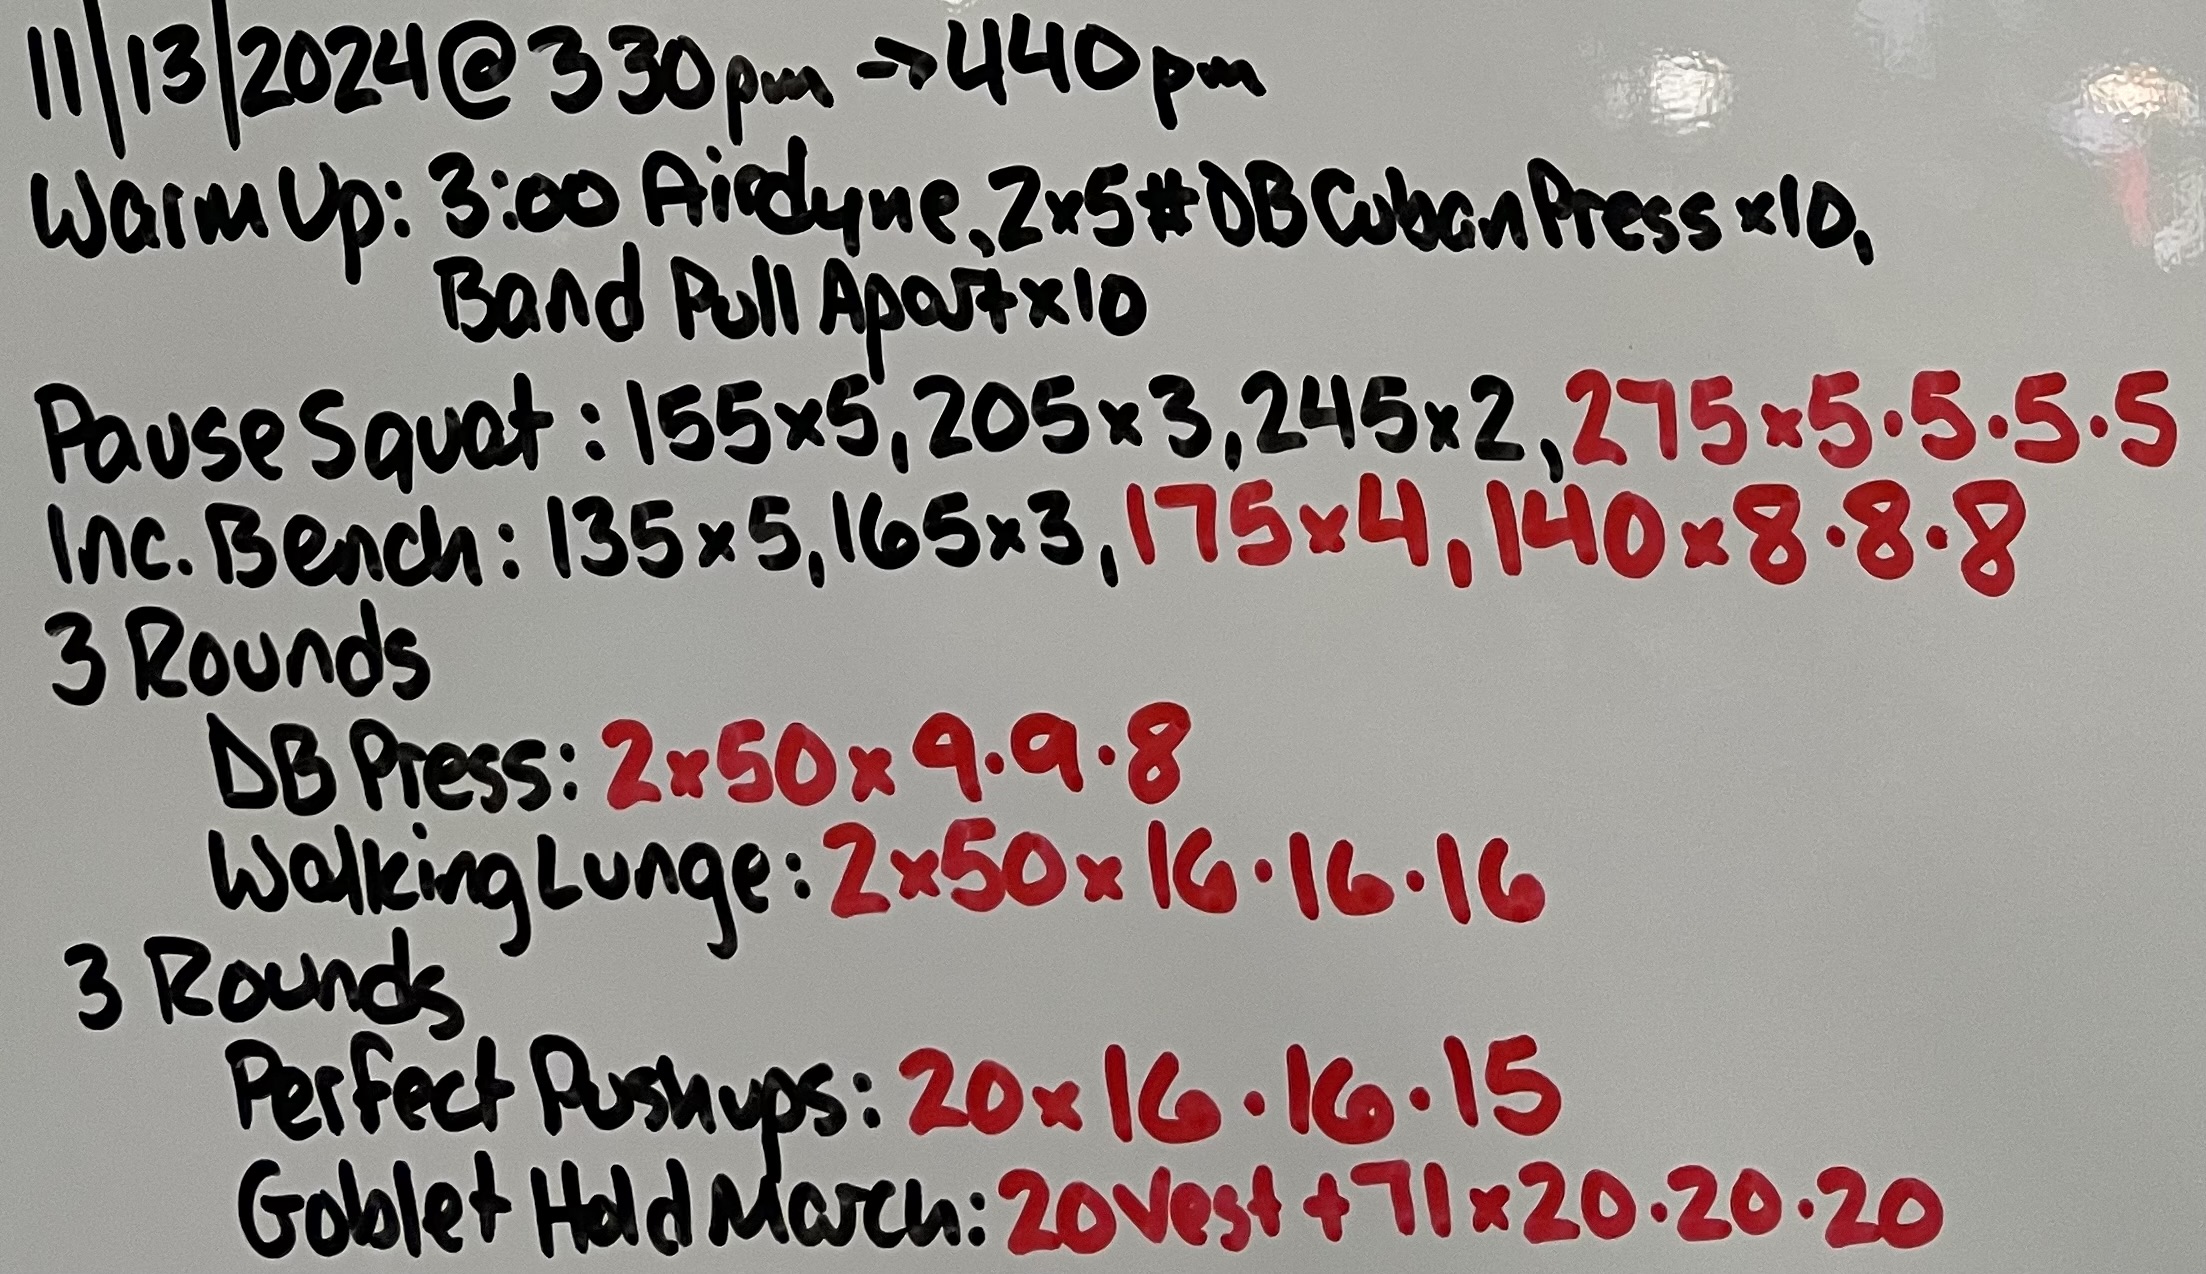 11/13/2024@330pm→440pm
Warm Up: 3:00 Airdyne, 2x5#DB Cuban Press x10,
Band Pull Apart x10
Pause Squat: 155x5, 205x3, 245x2, 275x5·5·5·5
Inc. Bench: 135x5, 165x3, 175x4, 140x8·8·8
3 Rounds
DB Press: 2x50x9·9·8
Walking Lunge: 2x50x16·16·16
3 Rounds
Perfect Pushups: 20x16·16·15
Goblet Hold March: 20Vest+71x20·20·20